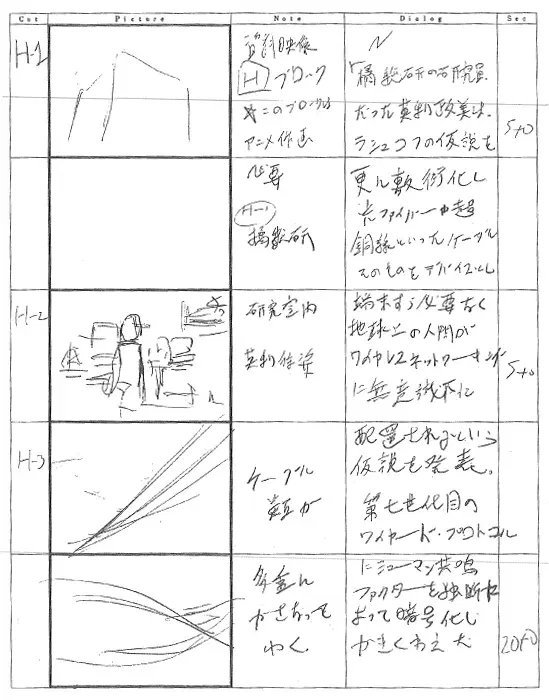 Cut Picture Note Dialog Sec
H-1
資料映像
H ブロック
※このブロックは
アニメ作画
N
「橘総研の研究員
だった英利政美は、
ラシュコフの仮説を
5+0
必要
H-1
橘総研
更に敷衍化し
光ファイバーや超
銅線といったケーブル
そのものをデバイスとし
H-2
研究室内
英利後姿
端末すら必要なく
地球上の人間が
ワイヤレスネットワーキング
に無意識下に
5+0
H-3
ケーブル
英利が
配置されるという
仮説を発表。
第七世代目の
ワイヤード・プロトコル
多重に
かさなって
ゆく。
にヒューマン共鳴
ファクターを独断に
よって暗号化し
かきくわえた
20+0